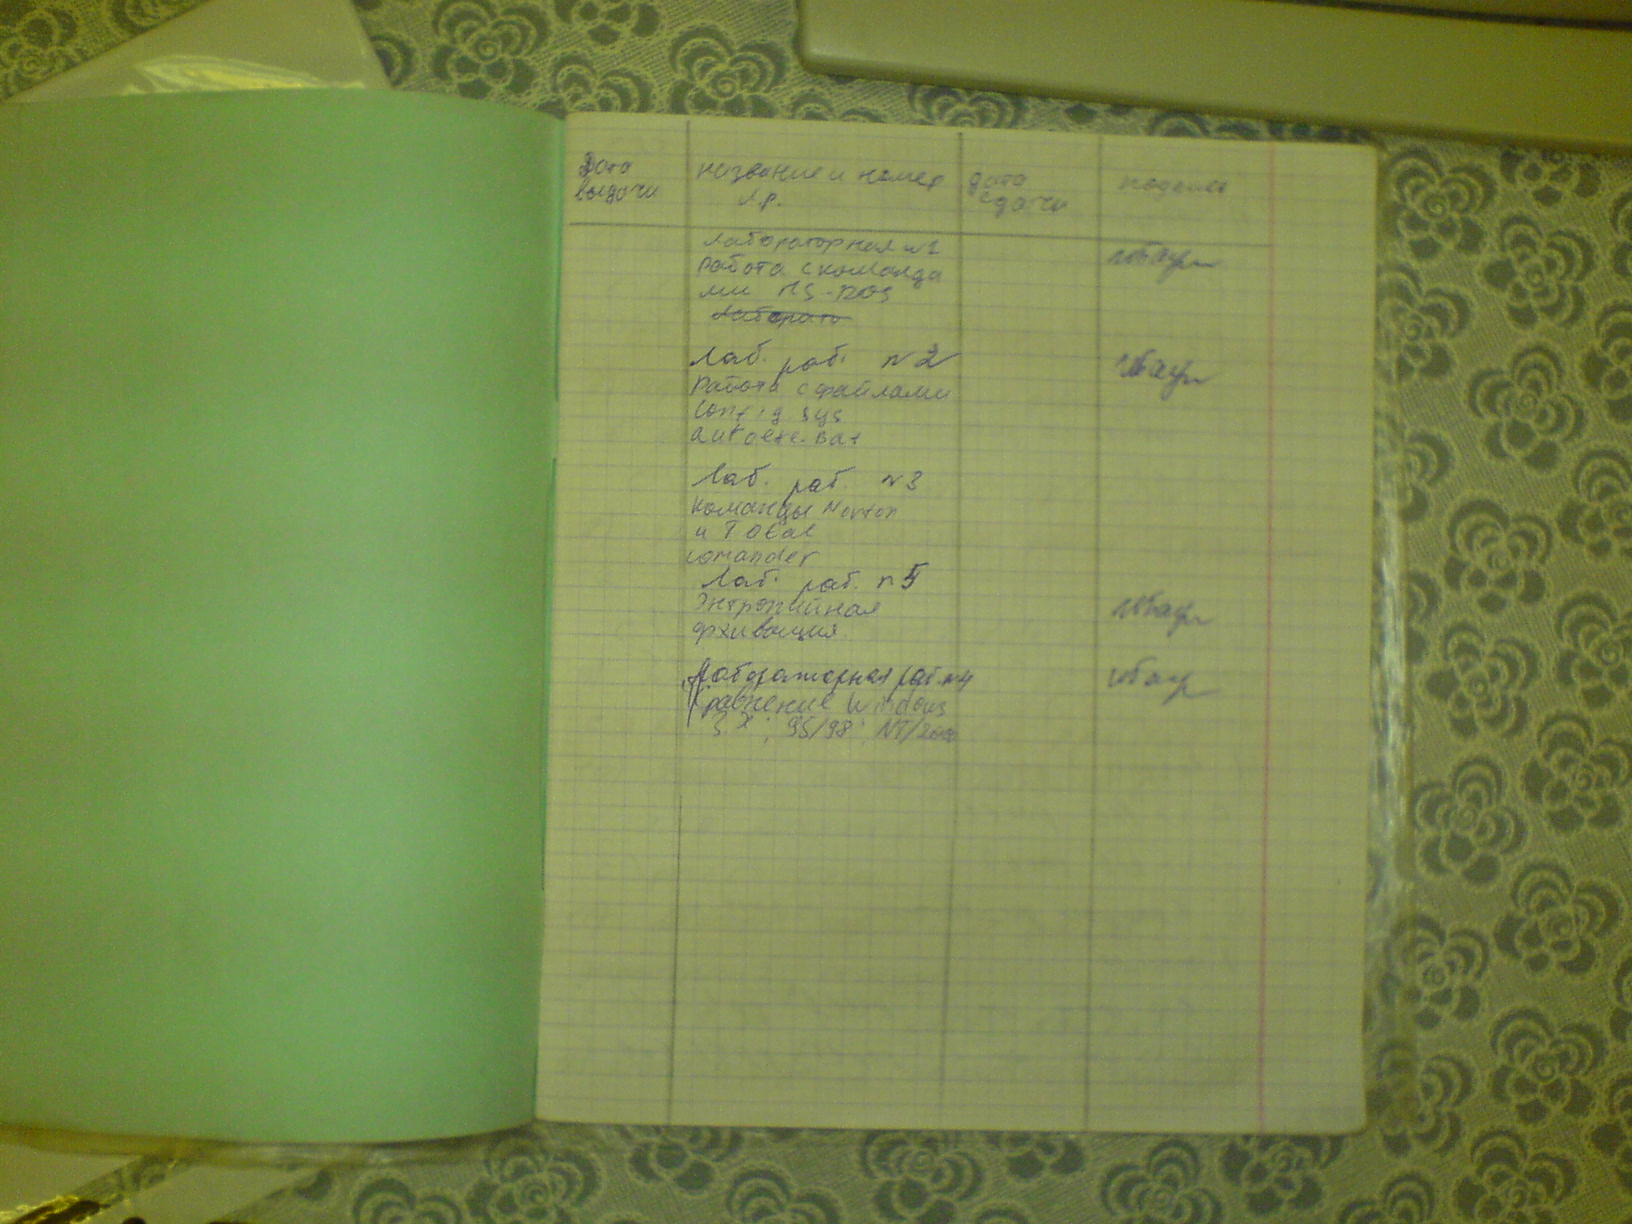 Дата
выдачи
название и номер
л.р.
дата
сдачи
подпись
Лабораторная №1
Работа с команда
ми MS-DOS
Лаборато
Лаб. раб. №2
Работа с файлами
Config sys
autoexe. Bat
Лаб. раб. №3
Команды Norton
и Total
comander
Лаб. раб. №5
Энтропийная
архивация.
Лабораторная раб. №4
Сравнение Windows
3.x ; 95/98 ; NT/2000